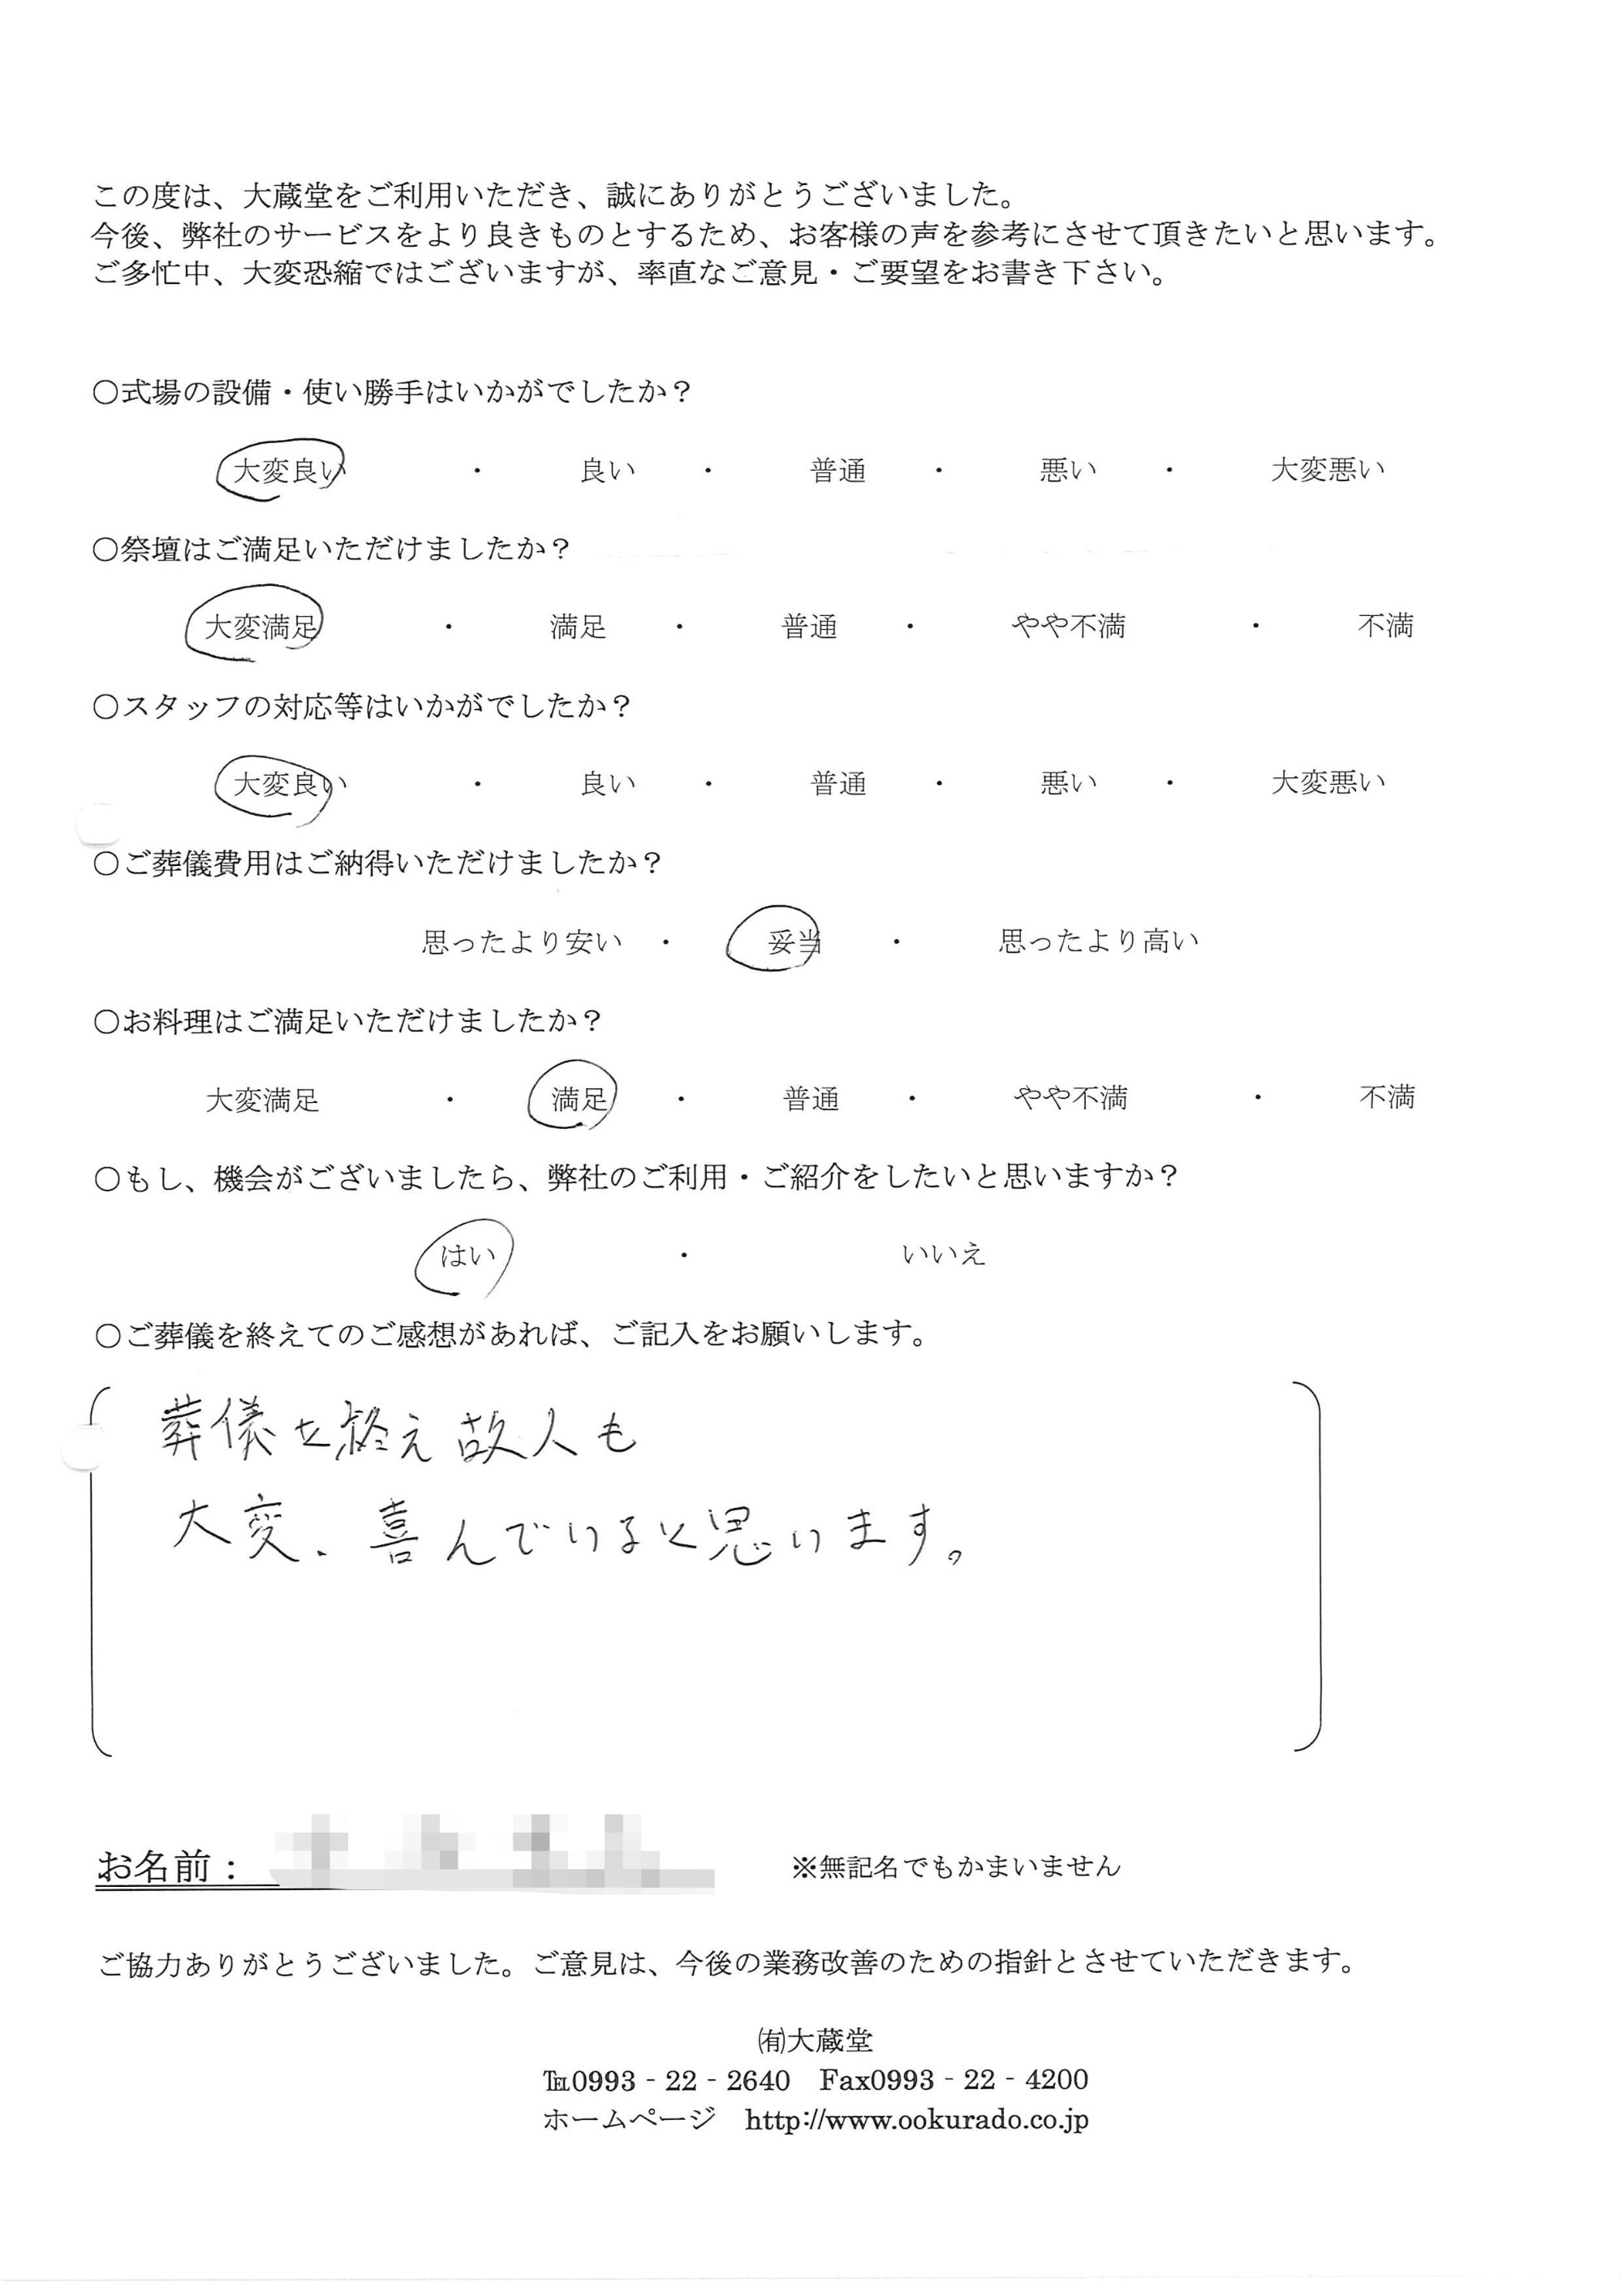 この度は、大蔵堂をご利用いただき、誠にありがとうございました。
今後、弊社のサービスをより良きものとするため、お客様の声を参考にさせて頂きたいと思います。
ご多忙中、大変恐縮ではございますが、率直なご意見・ご要望をお書き下さい。
○式場の設備・使い勝手はいかがでしたか？
大変良い ・ 良い ・ 普通 ・ 悪い ・ 大変悪い
○祭壇はご満足いただけましたか？
大変満足 ・ 満足 ・ 普通 ・ やや不満 ・ 不満
○スタッフの対応等はいかがでしたか？
大変良い ・ 良い ・ 普通 ・ 悪い ・ 大変悪い
○ご葬儀費用はご納得いただけましたか？
思ったより安い ・ 妥当 ・ 思ったより高い
○お料理はご満足いただけましたか？
大変満足 ・ 満足 ・ 普通 ・ やや不満 ・ 不満
○もし、機会がございましたら、弊社のご利用・ご紹介をしたいと思いますか？
はい ・ いいえ
○ご葬儀を終えてのご感想があれば、ご記入をお願いします。
葬儀を終え故人も
大変、喜んでいると思います。
お名前： ※無記名でもかまいません
ご協力ありがとうございました。ご意見は、今後の業務改善のための指針とさせていただきます。
㈲大蔵堂
℡0993‐22‐2640 Fax0993‐22‐4200
ホームページ http://www.ookurado.co.jp